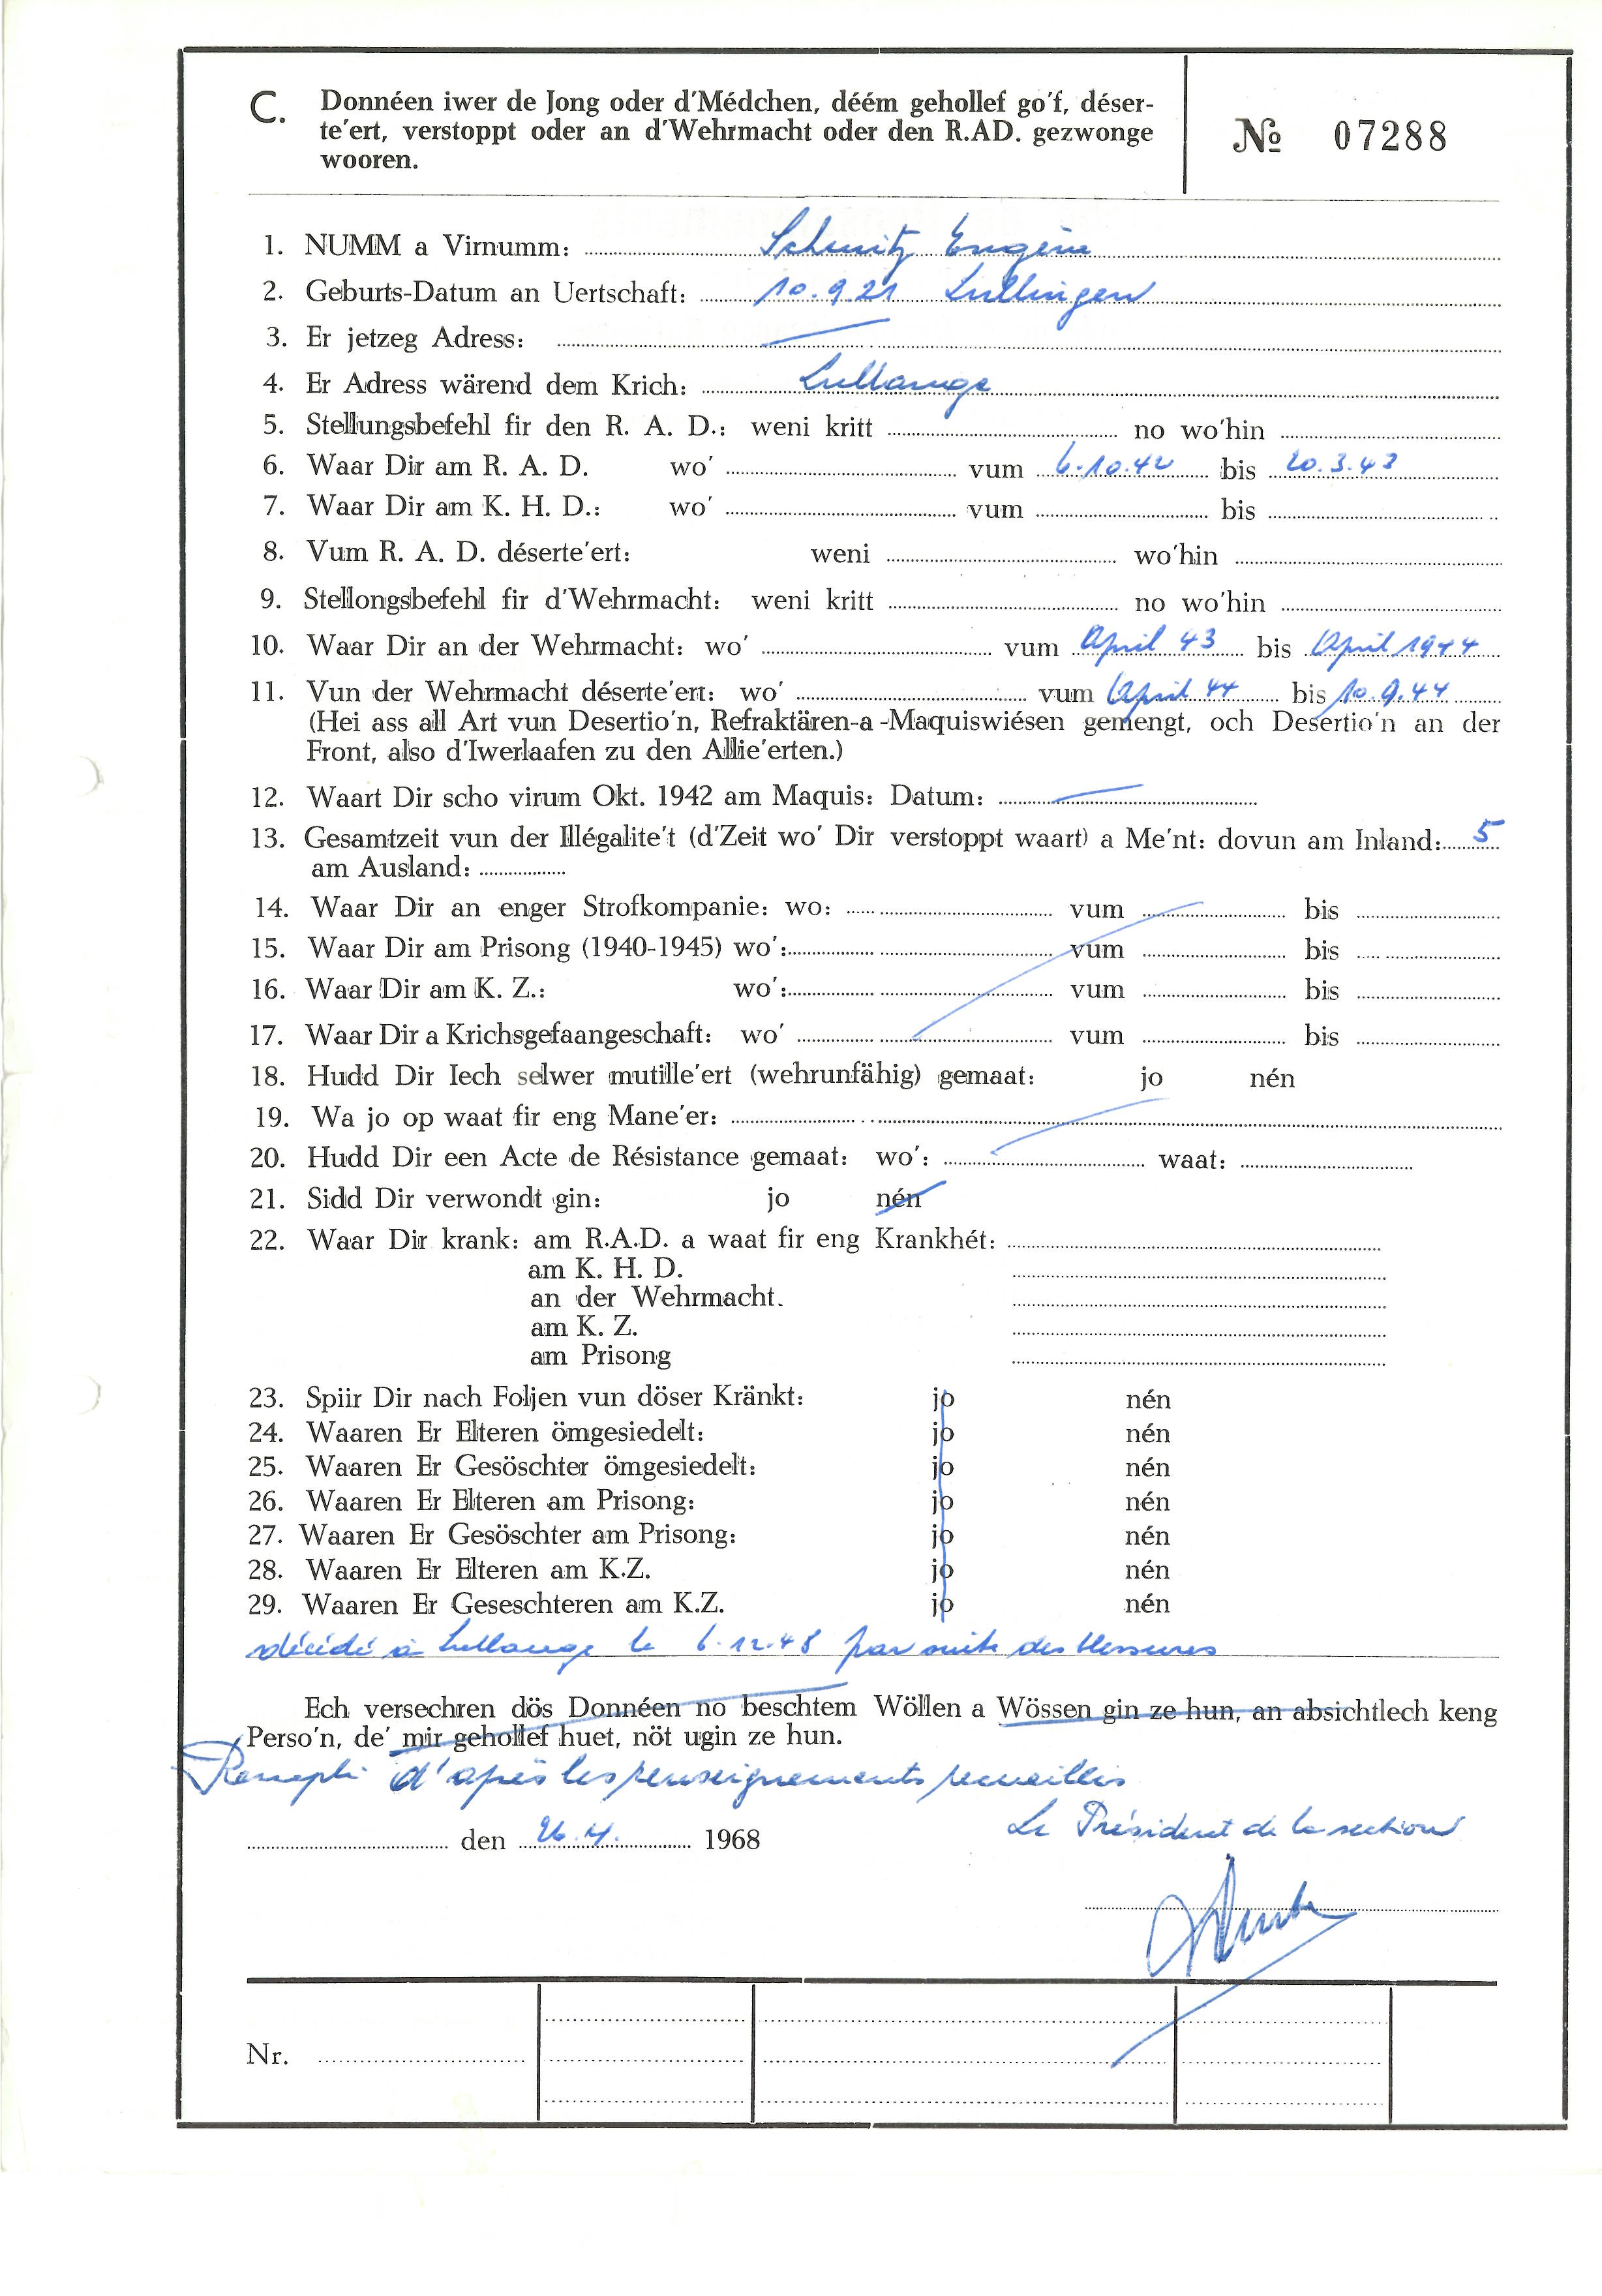 C. Donnéen iwer de Jong oder d'Médchen, déém gehollef go'f, déser-
te'ert, verstoppt oder an d'Wehrmacht oder den R.AD. gezwonge
wooren.
№ 07288
1. NUMM a Virnumm: Schmitz Eugène
2. Geburts-Datum an Uertschaft: 10.9.21 Lullingen
3. Er jetzeg Adress:
4. Er Adress wärend dem Krich: Lullange
5. Stellungsbefehl fir den R. A. D.: weni kritt no wo'hin
6. Waar Dir am R. A. D. wo' vum 6.10.42 bis 20.3.43
7. Waar Dir am K. H. D.: wo' vum bis
8. Vum R. A. D. déserte'ert: weni wo'hin
9. Stellongsbefehl fir d'Wehrmacht: weni kritt no wo'hin
10. Waar Dir an der Wehrmacht: wo' vum April 43 bis April 1944
11. Vun der Wehrmacht déserte'ert: wo' vum April 44 bis 10.9.44
(Hei ass all Art vun Desertio'n, Refraktären-a-Maquiswiésen gemengt, och Desertio'n an der
Front, also d'Iwerlaafen zu den Allie'erten.)
12. Waart Dir scho virum Okt. 1942 am Maquis: Datum:
13. Gesamtzeit vun der Illégalite't (d'Zeit wo' Dir verstoppt waart) a Me'nt: dovun am Inland: 5
am Ausland:
14. Waar Dir an enger Strofkompanie: wo: vum bis
15. Waar Dir am Prisong (1940-1945) wo': vum bis
16. Waar Dir am K. Z.: wo': vum bis
17. Waar Dir a Krichsgefaangeschaft: wo' vum bis
18. Hudd Dir Iech selwer mutille'ert (wehrunfähig) gemaat: jo nén
19. Wa jo op waat fir eng Mane'er:
20. Hudd Dir een Acte de Résistance gemaat: wo': waat:
21. Sidd Dir verwondt gin: jo nén
22. Waar Dir krank: am R.A.D. a waat fir eng Krankhét:
am K. H. D.
an der Wehrmacht.
am K. Z.
am Prisong
23. Spiir Dir nach Foljen vun döser Kränkt: jo nén
24. Waaren Er Elteren ömgesiedelt: jo nén
25. Waaren Er Gesöschter ömgesiedelt: jo nén
26. Waaren Er Elteren am Prisong: jo nén
27. Waaren Er Gesöschter am Prisong: jo nén
28. Waaren Er Elteren am K.Z. jo nén
29. Waaren Er Geseschteren am K.Z. jo nén
décédé à Lullange le 6.12.48 par suite des blessures
Ech versechren dös Donnéen no beschtem Wöllen a Wössen gin ze hun, an absichtlech keng
Perso'n, de' mir gehollef huet, nöt ugin ze hun.
Rempli d'après les renseignements recueillis
Le Président de la section
den 1968
Nr.